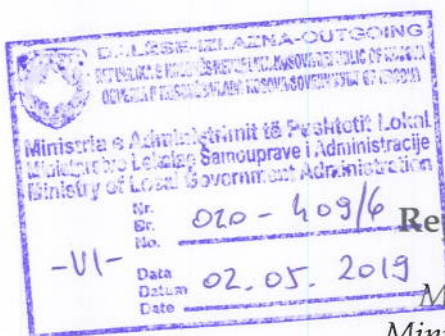 DALËSE-IZLAZNA-OUTGOING
Ministria e Administrimit të Pushtetit Lokal
Ministarstvo Lokalne Samouprave i Administracije
Ministry of Local Government Administration
Nr.
Br.
No.
020 -
-VI-
Re
Data
Datum
Date
02.05.2019
M
Min